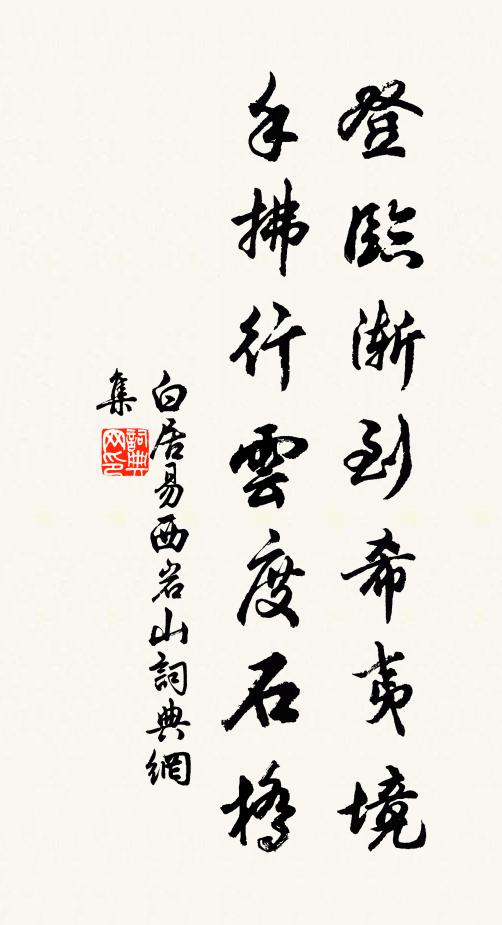 登臨漸到希夷境
手拂行雲度石橋
白居易西岩山詞典網
集
詞典网印